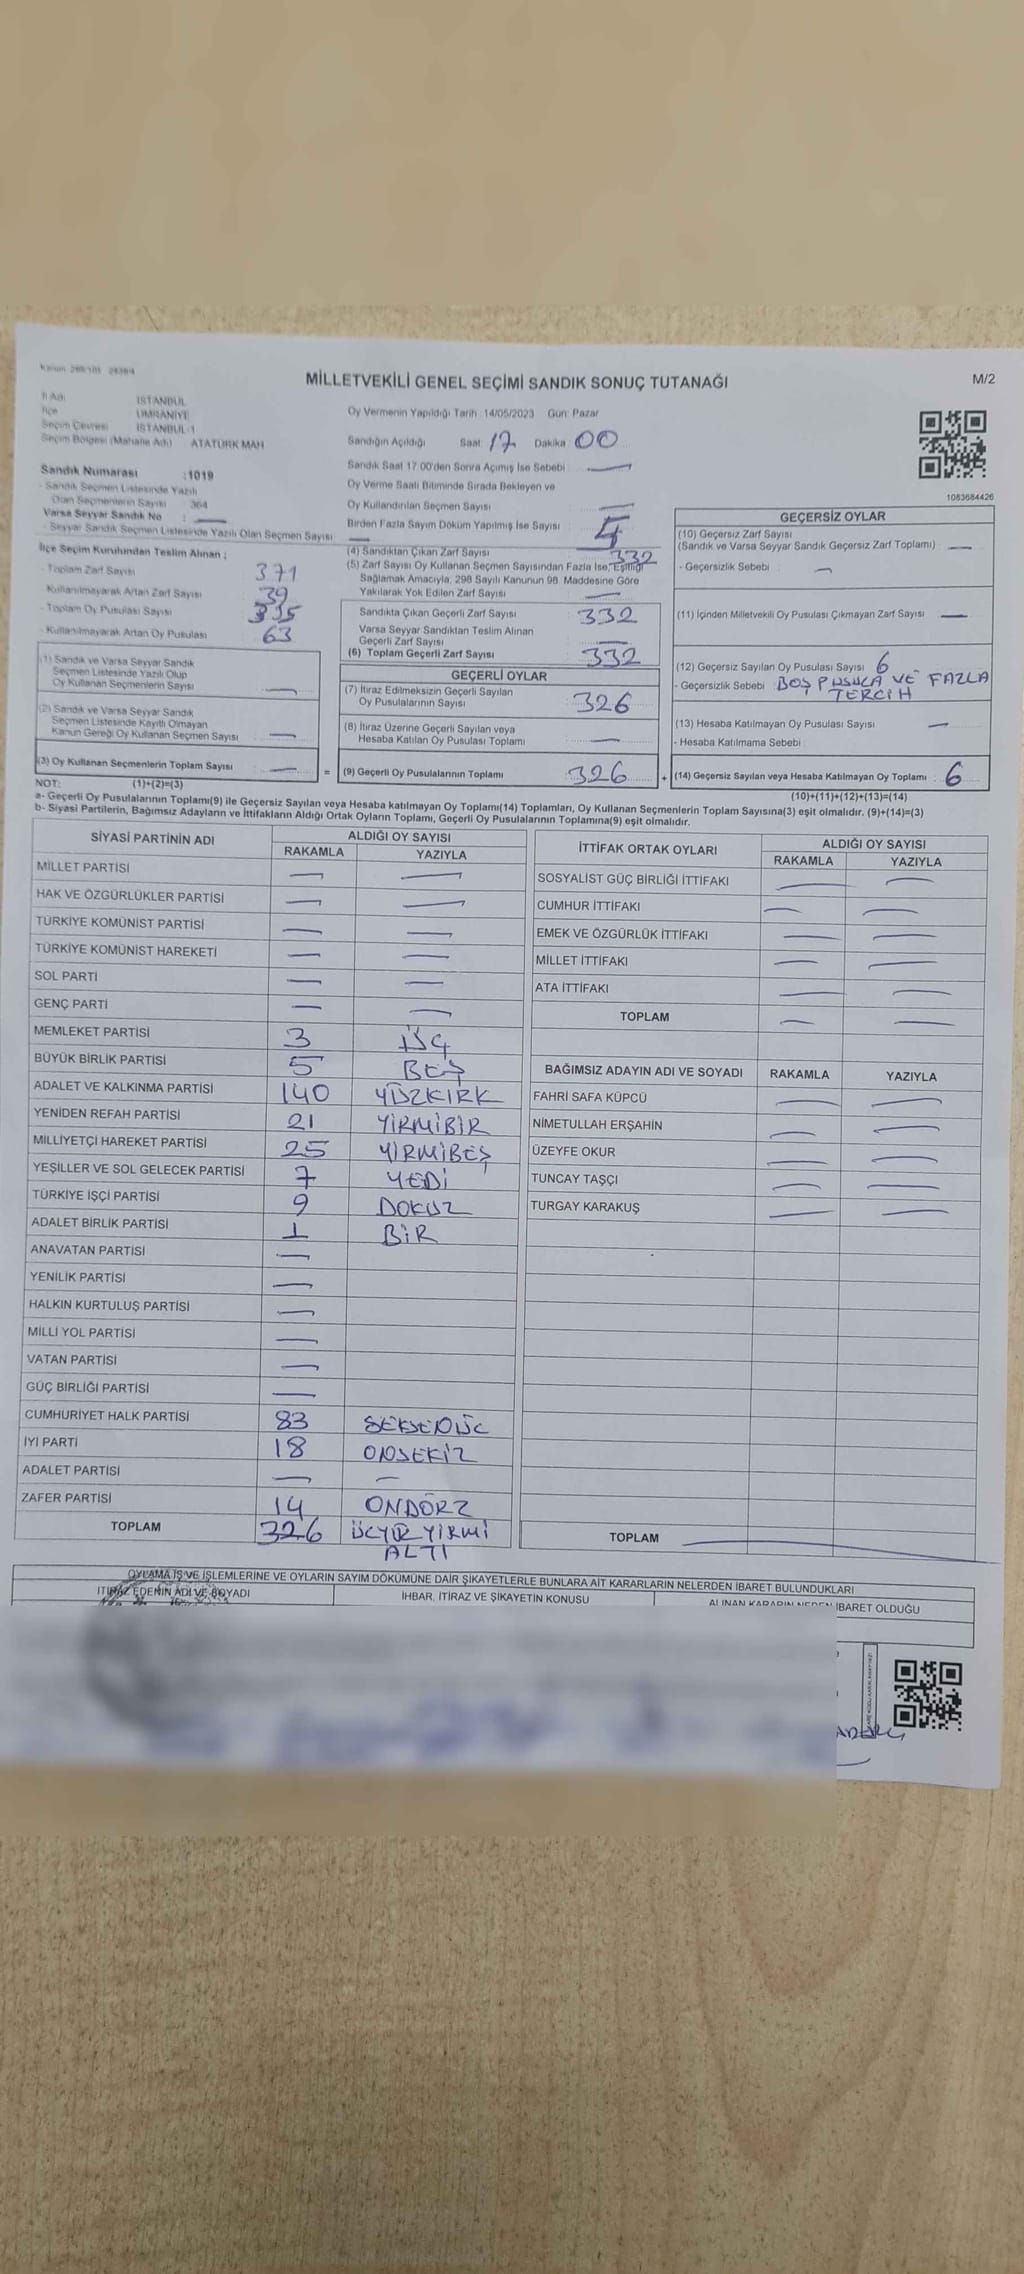 MİLLETVEKİLİ GENEL SEÇİMİ SANDIK SONUÇ TUTANAĞI
M/2
İl Adı İSTANBUL
İlçe ÜMRANİYE
Seçim Çevresi İSTANBUL-1
Seçim Bölgesi (Mahalle Adı) ATATÜRK MAH
Sandık Numarası :1019
- Sandık Seçmen Listesinde Yazılı
Olan Seçmenlerin Sayısı 364
Varsa Seyyar Sandık No : —
- Seyyar Sandık Seçmen Listesinde Yazılı Olan Seçmen Sayısı —
Oy Vermenin Yapıldığı Tarih :14/05/2023 Gün: Pazar
Sandığın Açıldığı Saat: 17 Dakika: 00
Sandık Saat 17:00'den Sonra Açımış İse Sebebi: —
Oy Verme Saati Bitiminde Sırada Bekleyen ve
Oy Kullandırılan Seçmen Sayısı —
Birden Fazla Sayım Döküm Yapılmış İse Sayısı :
1083684426
İlçe Seçim Kurulundan Teslim Alınan ;
- Toplam Zarf Sayısı 371
- Kullanılmayarak Artan Zarf Sayısı 39
- Toplam Oy Pusulası Sayısı
- Kullanılmayarak Artan Oy Pusulası 63
(1) Sandık ve Varsa Seyyar Sandık
Seçmen Listesinde Yazılı Olup
Oy Kullanan Seçmenlerin Sayısı —
(2) Sandık ve Varsa Seyyar Sandık
Seçmen Listesinde Kayıtlı Olmayan
Kanun Gereği Oy Kullanan Seçmen Sayısı —
(3) Oy Kullanan Seçmenlerin Toplam Sayısı —
(4) Sandıktan Çıkan Zarf Sayısı 332
(5) Zarf Sayısı Oy Kullanan Seçmen Sayısından Fazla İse, Eşitliği
Sağlamak Amacıyla, 298 Sayılı Kanunun 98. Maddesine Göre
Yakılarak Yok Edilen Zarf Sayısı —
Sandıkta Çıkan Geçerli Zarf Sayısı 332
Varsa Seyyar Sandıktan Teslim Alınan
Geçerli Zarf Sayısı —
(6) Toplam Geçerli Zarf Sayısı 332
GEÇERLİ OYLAR
(7) İtiraz Edilmeksizin Geçerli Sayılan
Oy Pusulalarının Sayısı 326
(8) İtiraz Üzerine Geçerli Sayılan veya
Hesaba Katılan Oy Pusulası Toplamı —
= (9) Geçerli Oy Pusulalarının Toplamı 326
GEÇERSİZ OYLAR
(10) Geçersiz Zarf Sayısı
(Sandık ve Varsa Seyyar Sandık Geçersiz Zarf Toplamı) : —
- Geçersizlik Sebebi : —
(11) İçinden Milletvekili Oy Pusulası Çıkmayan Zarf Sayısı : —
(12) Geçersiz Sayılan Oy Pusulası Sayısı : 6
- Geçersizlik Sebebi : BOŞ PUSULA VE FAZLA
TERCİH
(13) Hesaba Katılmayan Oy Pusulası Sayısı : —
- Hesaba Katılmama Sebebi :
+ (14) Geçersiz Sayılan veya Hesaba Katılmayan Oy Toplamı : 6
NOT: (1)+(2)=(3)
(10)+(11)+(12)+(13)=(14)
a- Geçerli Oy Pusulalarının Toplamı(9) ile Geçersiz Sayılan veya Hesaba katılmayan Oy Toplamı(14) Toplamları, Oy Kullanan Seçmenlerin Toplam Sayısına(3) eşit olmalıdır. (9)+(14)=(3)
b- Siyasi Partilerin, Bağımsız Adayların ve İttifakların Aldığı Ortak Oyların Toplamı, Geçerli Oy Pusulalarının Toplamına(9) eşit olmalıdır.
SİYASİ PARTİNİN ADI ALDIĞI OY SAYISI
RAKAMLA YAZIYLA
MİLLET PARTİSİ — —
HAK VE ÖZGÜRLÜKLER PARTİSİ — —
TÜRKİYE KOMÜNİST PARTİSİ — —
TÜRKİYE KOMÜNİST HAREKETİ — —
SOL PARTİ — —
GENÇ PARTİ — —
MEMLEKET PARTİSİ 3 ÜÇ
BÜYÜK BİRLİK PARTİSİ 5 BEŞ
ADALET VE KALKINMA PARTİSİ 140 YÜZKIRK
YENİDEN REFAH PARTİSİ 21 YİRMİBİR
MİLLİYETÇİ HAREKET PARTİSİ 25 YİRMİBEŞ
YEŞİLLER VE SOL GELECEK PARTİSİ 7 YEDİ
TÜRKİYE İŞÇİ PARTİSİ 9 DOKUZ
ADALET BİRLİK PARTİSİ 1 BİR
ANAVATAN PARTİSİ —
YENİLİK PARTİSİ —
HALKIN KURTULUŞ PARTİSİ —
MİLLİ YOL PARTİSİ —
VATAN PARTİSİ —
GÜÇ BİRLİĞİ PARTİSİ —
CUMHURİYET HALK PARTİSİ 83 SEKSENÜÇ
İYİ PARTİ 18 ONSEKİZ
ADALET PARTİSİ — —
ZAFER PARTİSİ 14 ONDÖRZ
TOPLAM 326 ÜÇYÜZYİRMİ
ALTI
İTTİFAK ORTAK OYLARI ALDIĞI OY SAYISI
RAKAMLA YAZIYLA
SOSYALİST GÜÇ BİRLİĞİ İTTİFAKI — —
CUMHUR İTTİFAKI — —
EMEK VE ÖZGÜRLÜK İTTİFAKI — —
MİLLET İTTİFAKI — —
ATA İTTİFAKI — —
TOPLAM — —
BAĞIMSIZ ADAYIN ADI VE SOYADI RAKAMLA YAZIYLA
FAHRİ SAFA KÜPCÜ — —
NİMETULLAH ERŞAHİN — —
ÜZEYFE OKUR — —
TUNCAY TAŞÇI — —
TURGAY KARAKUŞ — —
TOPLAM —
OYLAMA İŞ VE İŞLEMLERİNE VE OYLARIN SAYIM DÖKÜMÜNE DAİR ŞİKAYETLERLE BUNLARA AİT KARARLARIN NELERDEN İBARET BULUNDUKLARI
İTİRAZ EDENİN ADI VE SOYADI İHBAR, İTİRAZ VE ŞİKAYETİN KONUSU ALINAN KARARIN NEDEN İBARET OLDUĞU